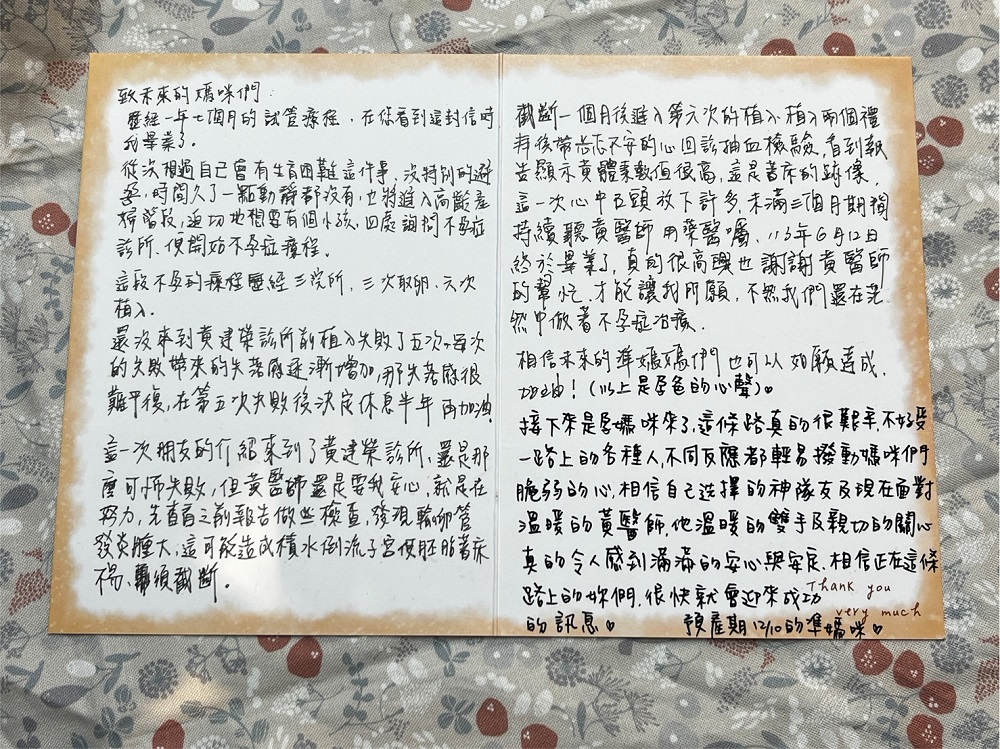 致未來的媽咪們：
歷經一年七個月的試管療程，在您看到這封信時
我畢業了。
從沒想過自己會有生育困難這件事，沒特別的避
孕，時間久了一點動靜都沒有，也將進入高齡產
婦階段，迫切地想要有個小孩，四處詢問不孕症
診所，便開始不孕症療程。
這段不孕的療程歷經三院所，三次取卵，六次
植入。
還沒來到黃建榮診所前植入失敗了五次，每次
的失敗帶來的失落感逐漸增加，那失落感很
難平復，在第五次失敗後決定休息半年再加油
這一次朋友的介紹來到了黃建榮診所，還是那
麼可怕失敗，但黃醫師還是要我安心，就是在
努力，先查看之前報告做些檢查，發現輸卵管
發炎腫大，這可能造成積水倒流子宮使胚胎著床
不易、需須截斷。
截斷一個月後進入第六次的植入，植入兩個禮
拜後帶忐忑不安的心回診抽血檢驗，看到報
告顯示黃體素數值很高，這是著床的跡象，
這一次心中石頭放下許多，未滿三個月期間
持續聽黃醫師用藥醫囑，113年6月12日
終於畢業了，真的很高興也謝謝黃醫師
的幫忙，才能讓我所願，不然我們還在茫
然中做著不孕症治療。
相信未來的準媽媽們也可以如願達成，
加油！（以上是孕爸的心聲）♡
接下來是孕媽咪來了，這條路真的很艱辛，不好受
一路上的各種人，不同反應都輕易撥動媽咪們
脆弱的心，相信自己選擇的神隊友及現在面對
溫暖的黃醫師，他溫暖的雙手及親切的關心
真的令人感到滿滿的安心與安定，相信正在這條
路上的妳們，很快就會迎來成功
的訊息♡ 預產期12/10的準媽咪♡
Thank you
very much